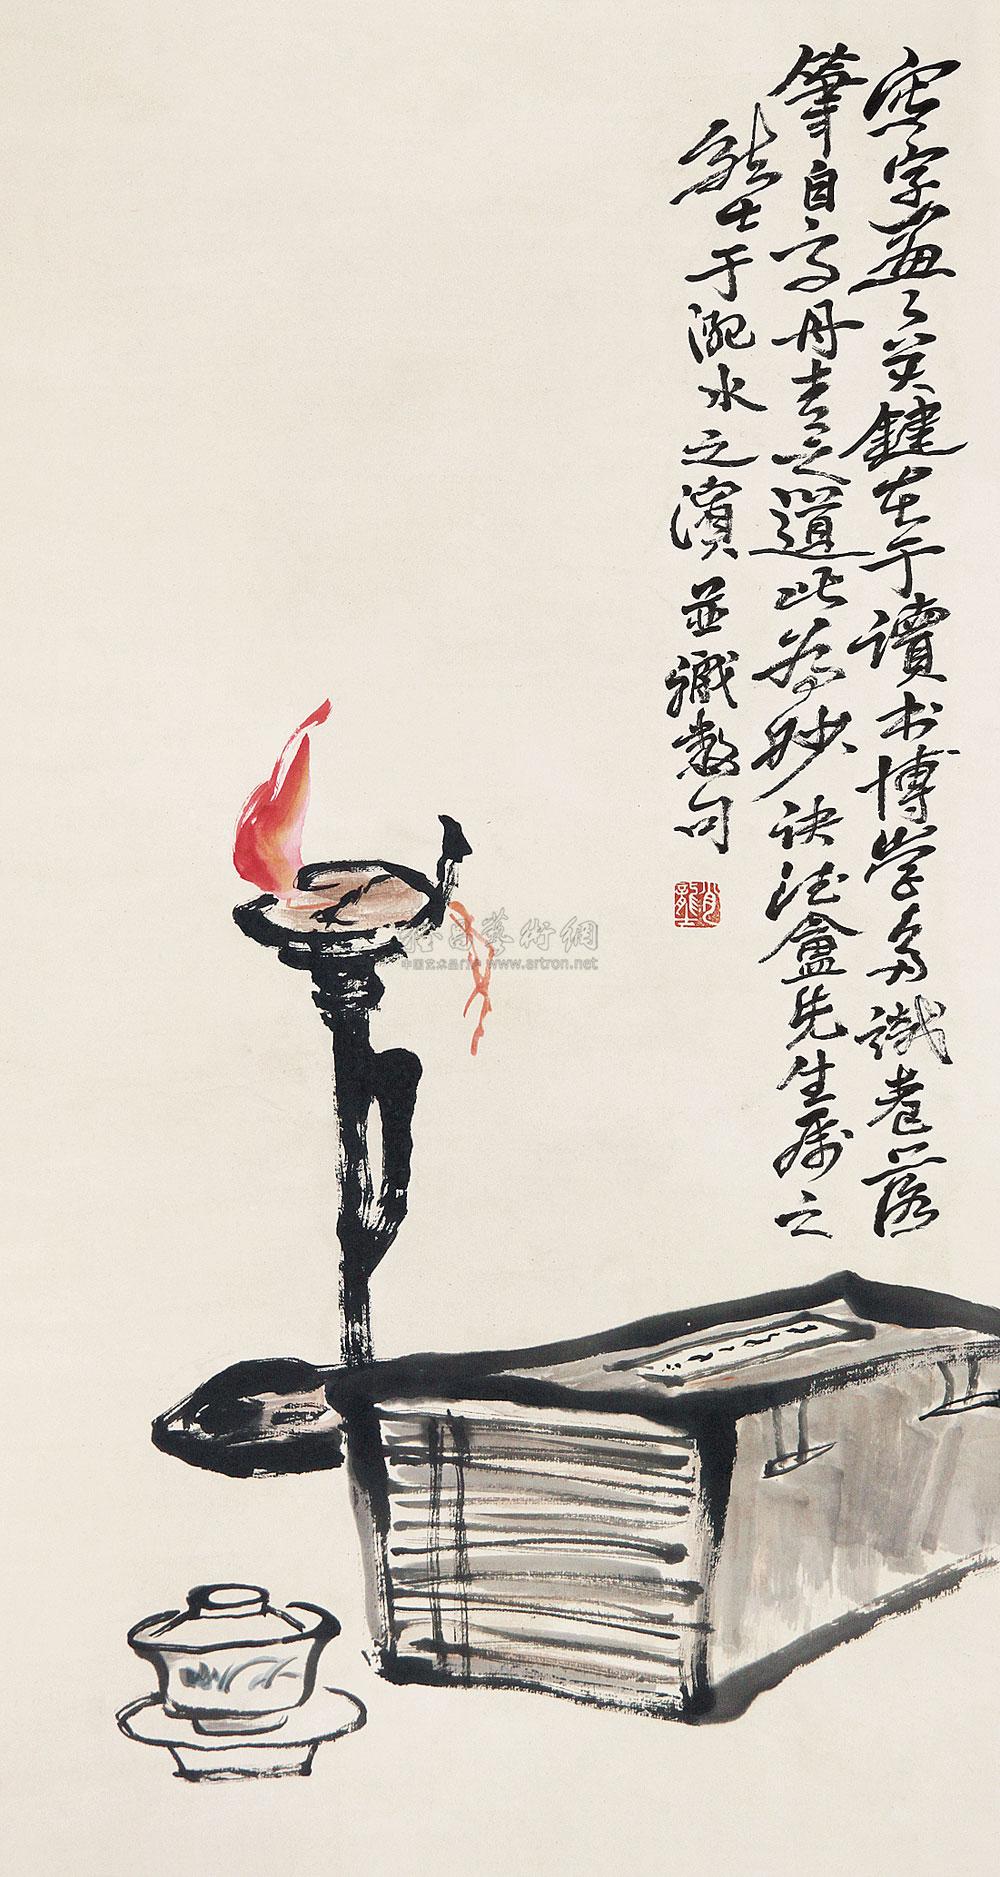 写字画之关键在于读书博学多识老落
笔自高丹青之道此为妙诀法盦先生属之
龙士于淝水之滨並识数句
肖龙士
雅昌藝術網
中国艺术品门户 www.artron.net